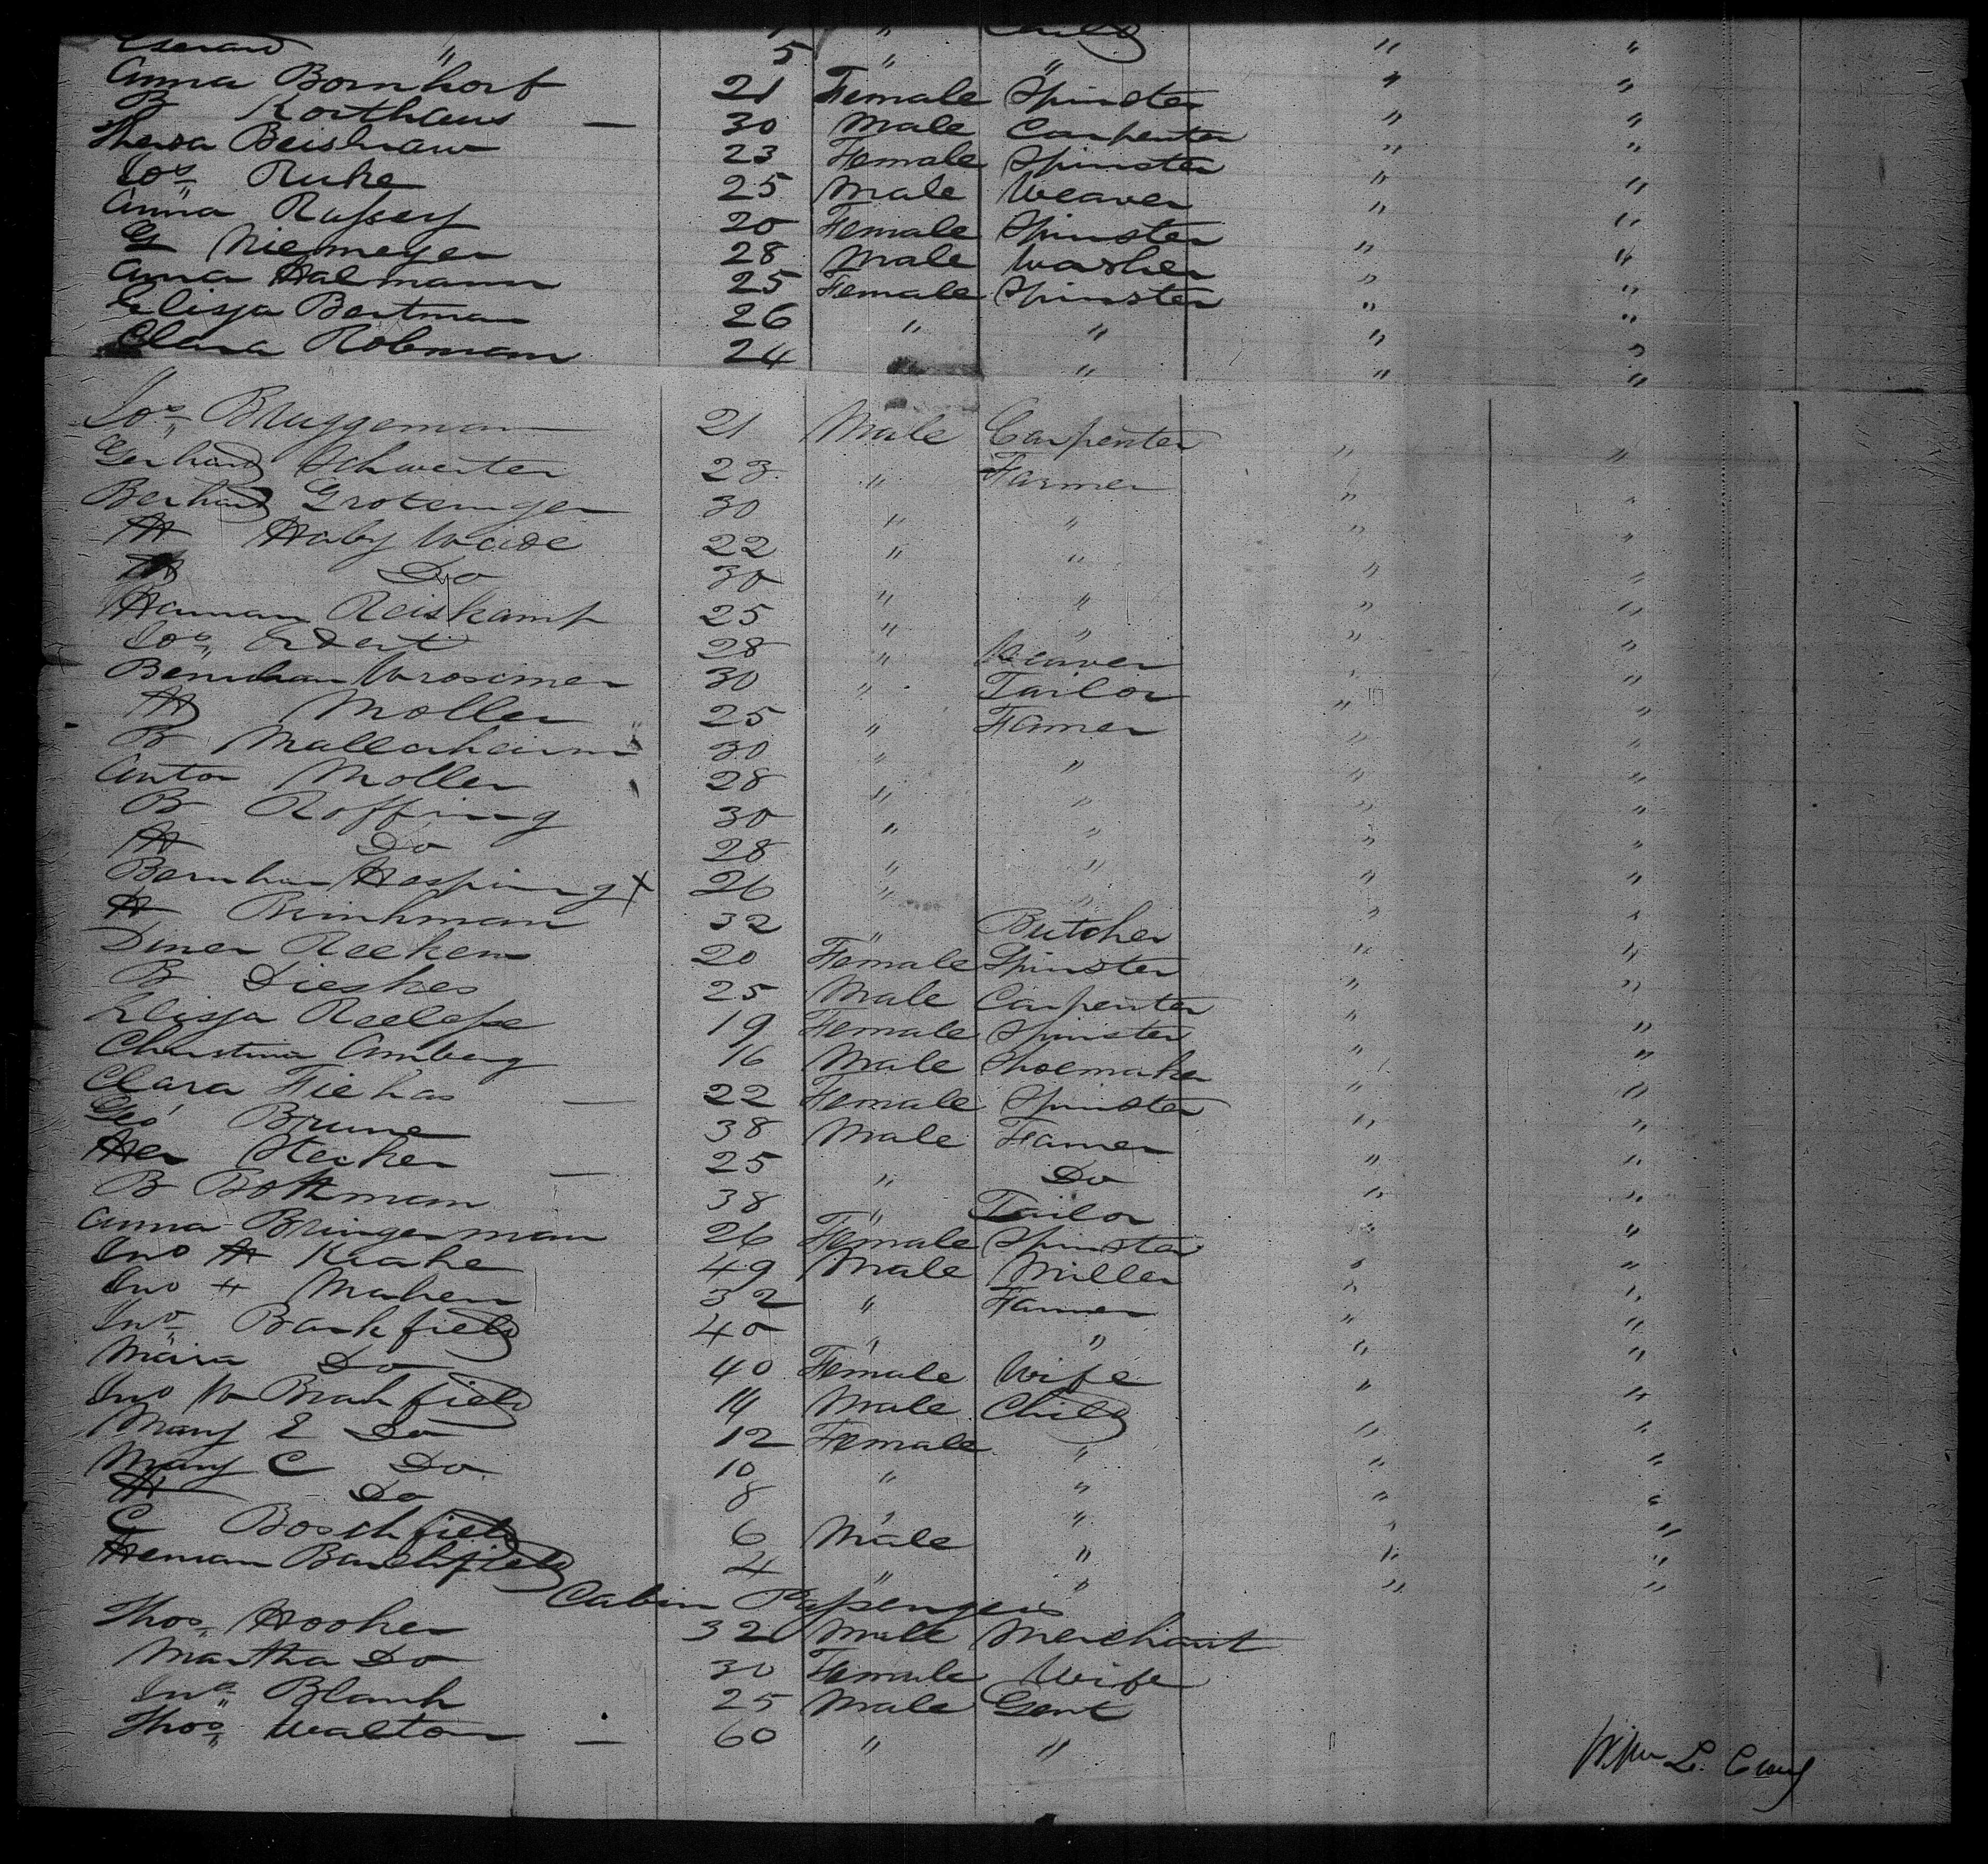 Gerard " 5 " "  " "
Anna Bornhorf 21 Female Spinster " "
B Korthaus — 30 Male Carpenter " "
Theresa 23 Female Spinster " "
Jos Ruhe 25 Male Weaver " "
Anna 20 Female Spinster " "
G Niemeyer 28 Male Washer " "
Anna Halmann 25 Female Spinster " "
Elisja Bertman 26 " " " "
Clara Robmann 24 " " " "
Jos Bruggeman 21 Male Carpenter " "
Gerhard Schwerter 23 " Farmer " "
Berhard Grotemger 30 " " " "
H Haby Wade 22 " " " "
H Do 30 " " " "
Haman Reiskamp 25 " " " "
Jos Erdert 28 " Weaver " "
Wrosimer 30 " Tailor " "
H Moller 25 " Famer " "
B Mallerheim 30 " " " "
Anton Moller 28 " " " "
B Roffing 30 " " " "
H Do 28 " " " "
Bernhar Hesping x 26 " " " "
H Brinkman 32 " Butcher " "
Diner Reekens 20 Female Spinster " "
B Dieskes 25 Male Carpenter " "
Elisja 19 Female Spinster " "
Christina Amberg 16 Male Shoemaker " "
Clara Fiehas — 22 Female Spinster " "
Geo Brune 38 Male Famer " "
Her Stecker — 25 " Do " "
B Bothman 38 " Tailor " "
Anna Bringerman 26 Female Spinster " "
Jno H Krahe 49 Male Miller " "
Jno H Maher 32 " Famer " "
Jno Barkfield 40 " " " "
Maria Do 40 Female Wife " "
Jno W Brahfield 14 Male Child " "
Mary E Do 12 Female " " "
Mary C Do 10 " " " "
H Do 8 " " " "
C Boschfield 6 Male " " "
Heman Barchfield 4 " " " "
Cabin Passengers
Thos Hooker 32 Male Merchant
Martha Do 30 Female Wife
Jno Blank 25 Male Gent
Thos Walton — 60 " "
Wm L.